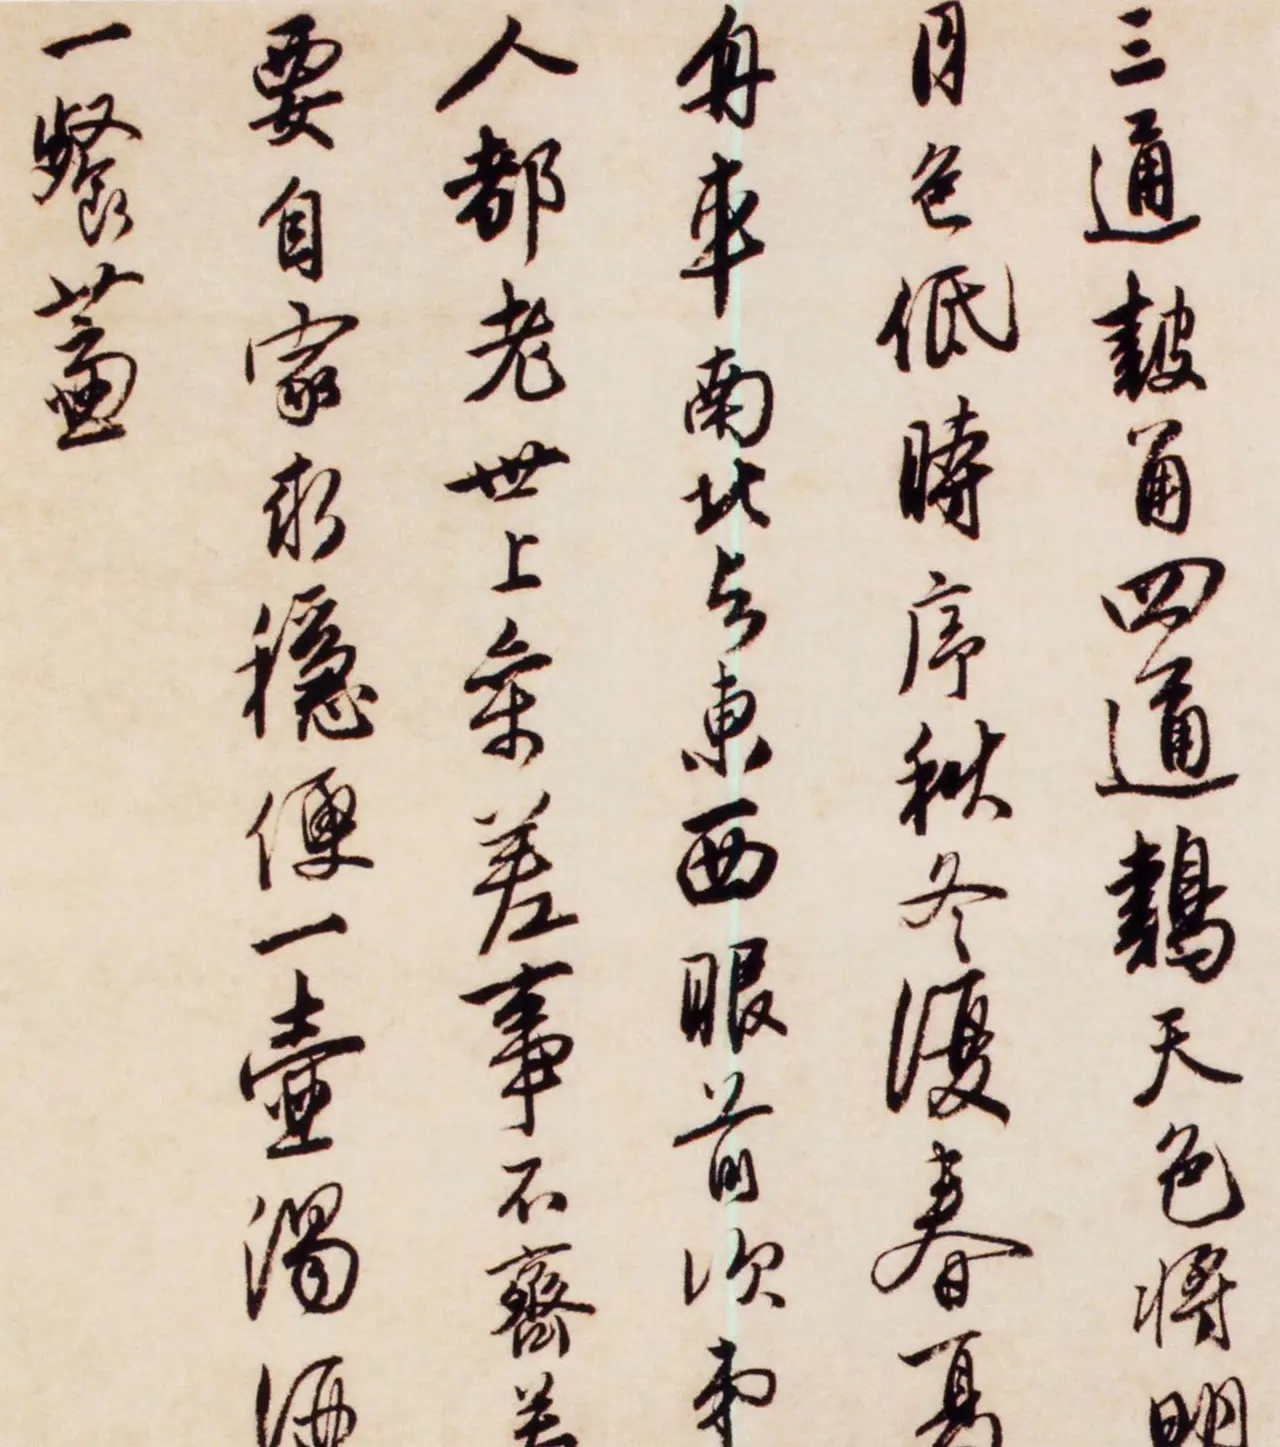 三通鼓角四通鷄天色將明
月色低時序秋冬復春夏
舟車南北与東西眼前次弟
人都老世上參差事不齊若
要自家求穩便一壺濁酒
一餐虀